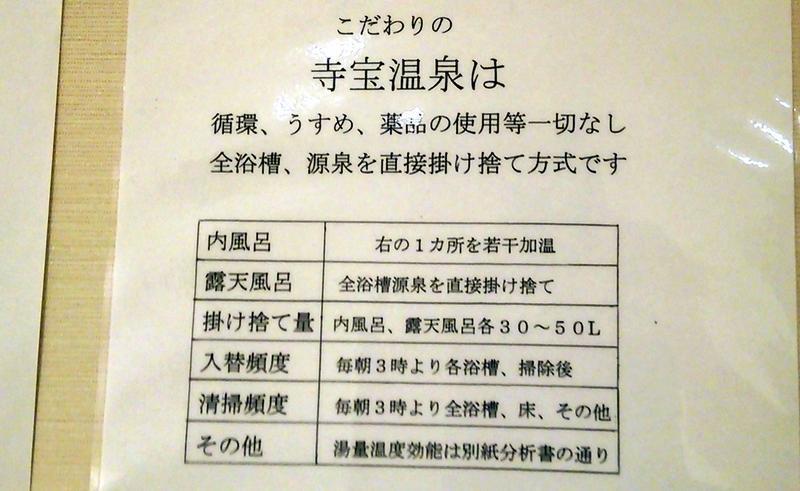 こだわりの
寺宝温泉は
循環、うすめ、薬品の使用等一切なし
全浴槽、源泉を直接掛け捨て方式です
内風呂 右の1カ所を若干加温
露天風呂 全浴槽源泉を直接掛け捨て
掛け捨て量 内風呂、露天風呂各30～50L
入替頻度 毎朝3時より各浴槽、掃除後
清掃頻度 毎朝3時より全浴槽、床、その他
その他 湯量温度効能は別紙分析書の通り